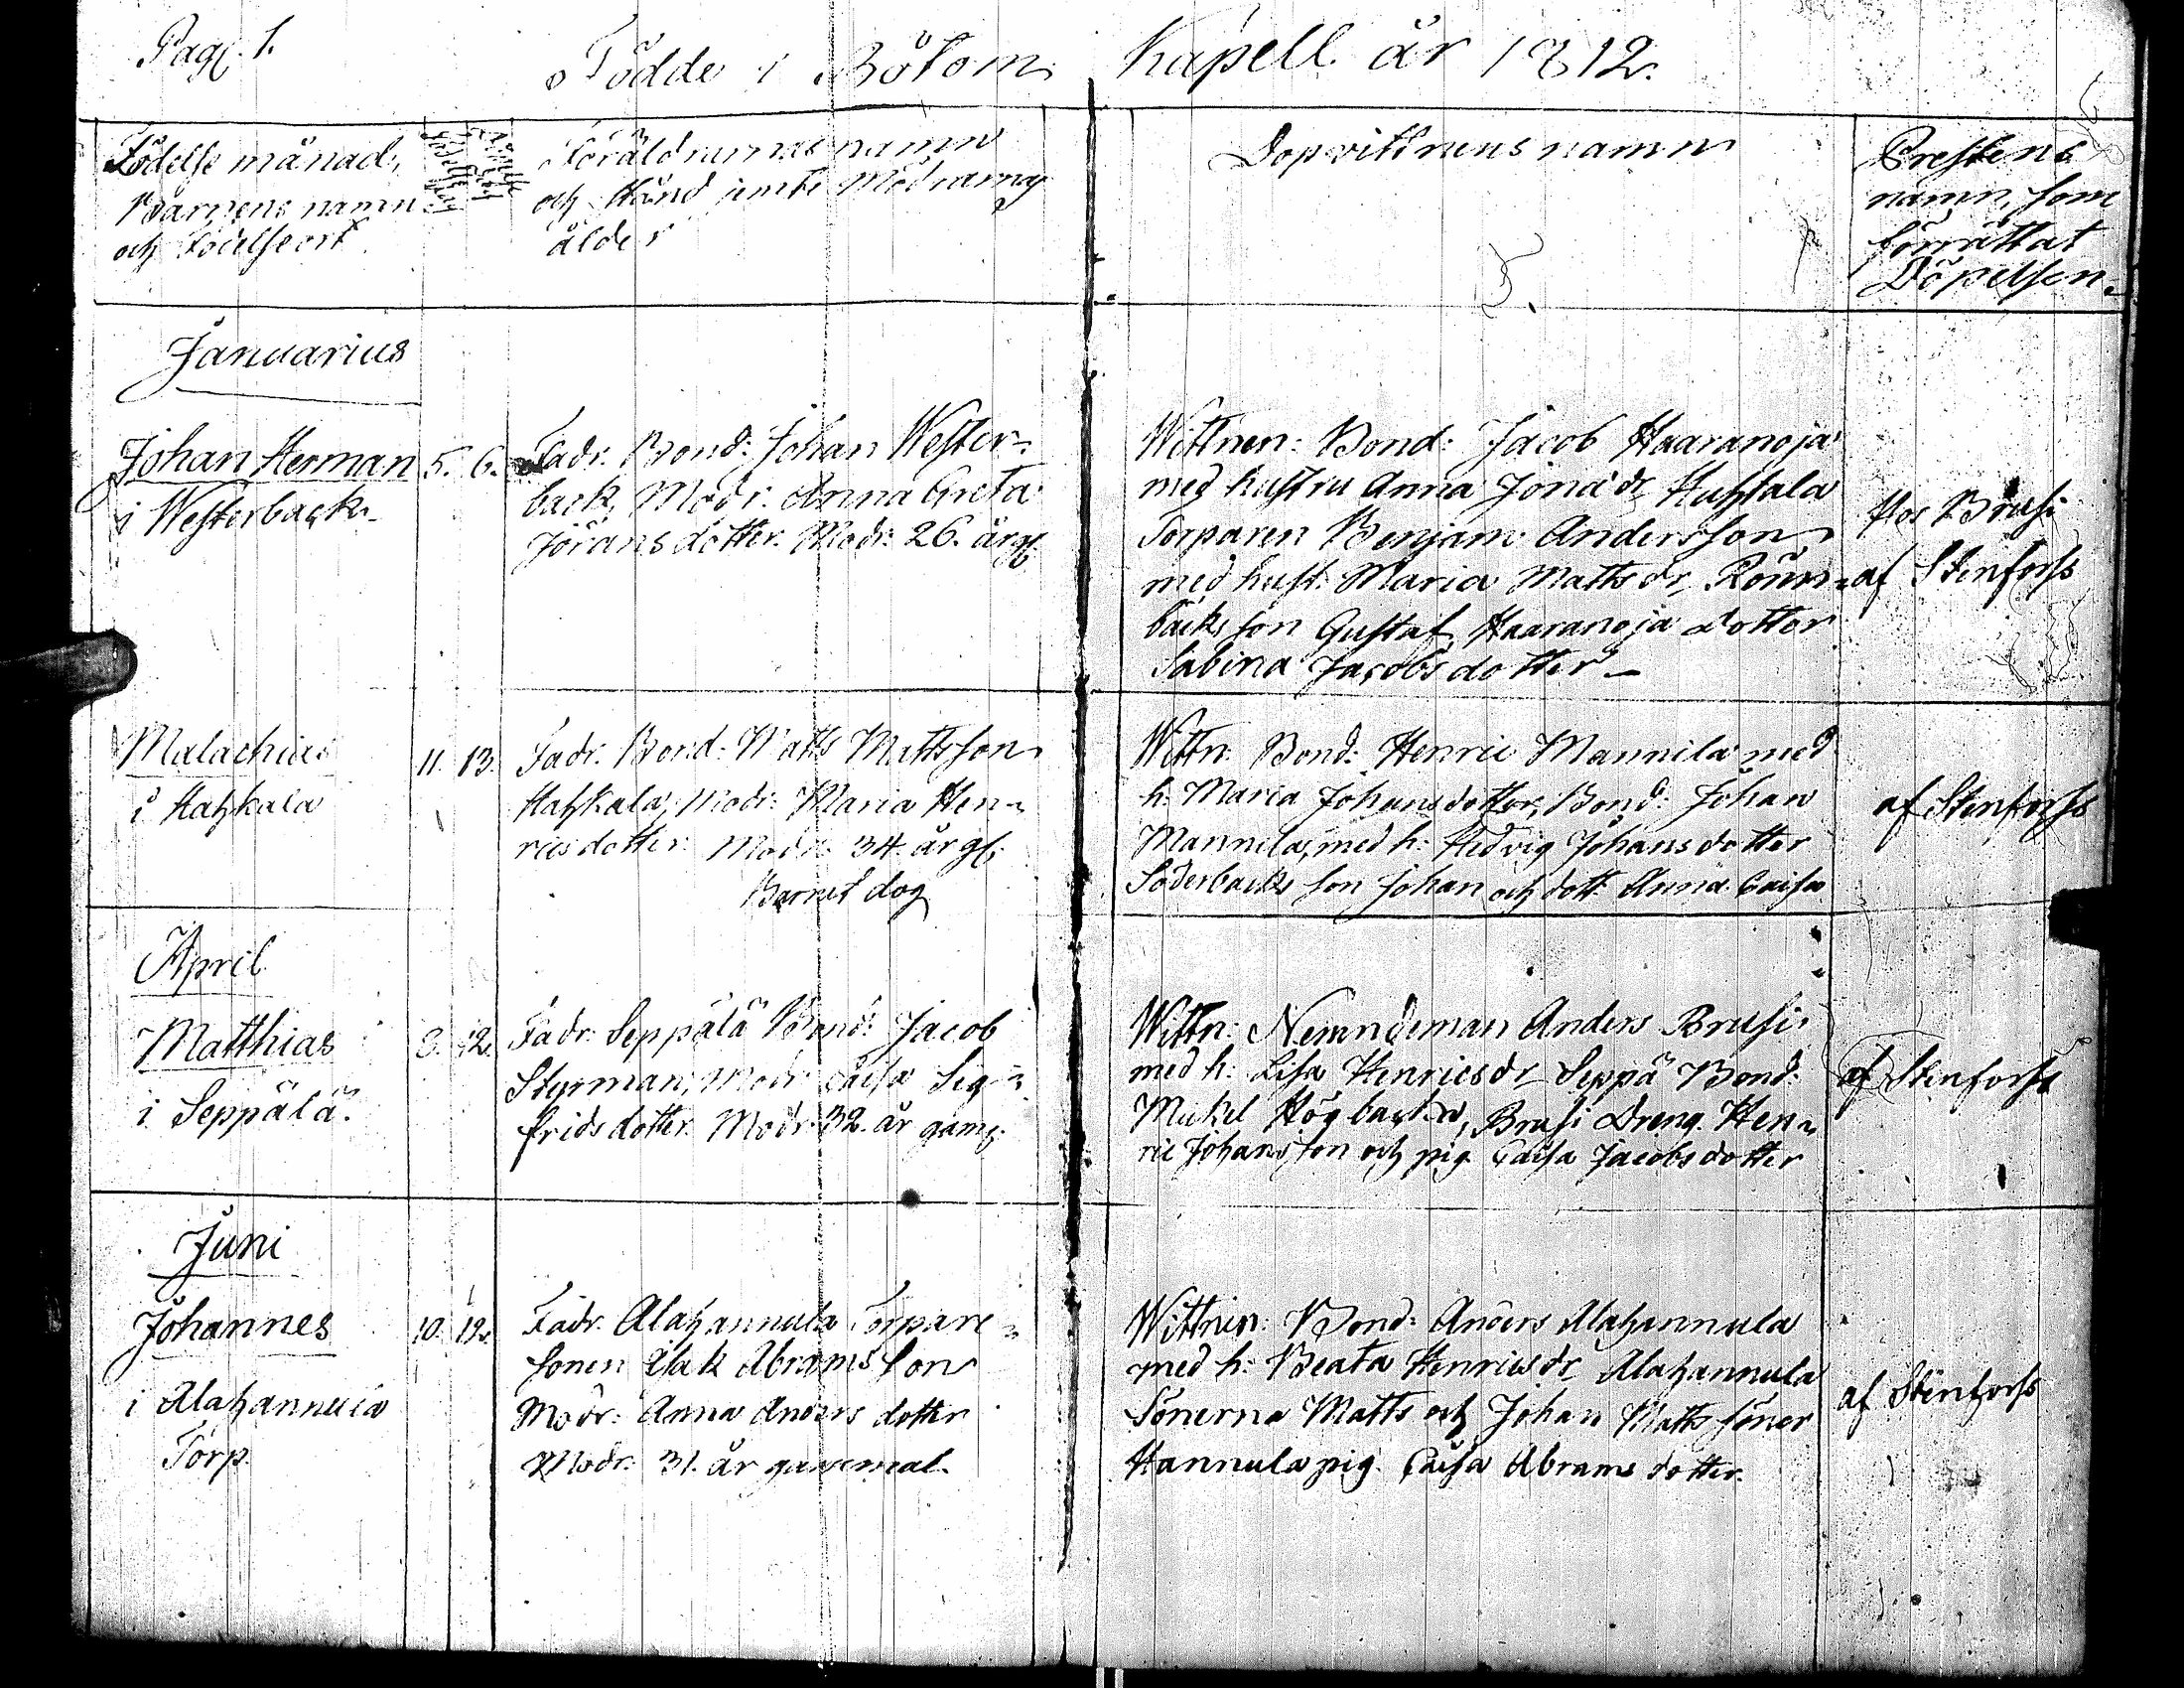 Pag. 1.
Födde i Bötom Kapell år 1812.
Födelse månad,
Barnens namn
och Födelseort
Föräldrarnas namn
och stånd jemte Mödrarnas
ålder
Dopvittnens namn
Prestens
namn, som
förrättat
Döpelsen.
Januarius
Johan Herman 5. 6.
i Westerback
Fadr. Bond: Johan Wester-
back, Modr. Anna Greta
Jöransdotter. Modr. 26. år gl.
Wittnen: Bond: Jacob Haaranoja
med hustru Anna Jona dr,
Torparen Benjam Andersson
med hust. Maria Matts dr,
backs son Gustaf, Haaranoja dotter
Sabina Jacobsdotter
Hos Brusi
af Stenforss
Malachias 11. 13.
i Hahkala
Fadr. Bond: Matts Mattsson
Hahkala, Modr: Maria Hen-
ricsdotter. Modr. 34. år gl.
Barnet dog
Wittn: Bond: Henric Mannila med
h: Maria Johansdotter, Bond: Johan
Mannila, med h: Hedvig Johansdotter
Söderbacks son Johan och dott: Anna Caisa
af Stenforss
April
Matthias 12.
i Seppälä.
Fadr. Seppälä Bond: Jacob
Styrman, Modr. Caisa Sig-
fridsdotter. Modr. 32. år gam:
Wittn: Nemndeman Anders Brusi
med h: Lisa Henricsdr, Seppä Bond:
Mickel Högbacka, Brusi Dreng Hen-
ric Johansson och pig. Caisa Jacobsdotter
af Stenforss
Juni
Johannes 10. 12.
i Alahannula
Torp.
Fadr. Alahannula Torpare-
sonen Isak Abramsson
Modr: Anna Andersdotter
Modr. 31. år gammal.
Wittnen: Bond: Anders Alahannula
med h: Beata Henricsdr, Alahannula
Sönerna Matts och Johan Matts söner
Hannula pig. Caisa Abramsdotter.
af Stenforss